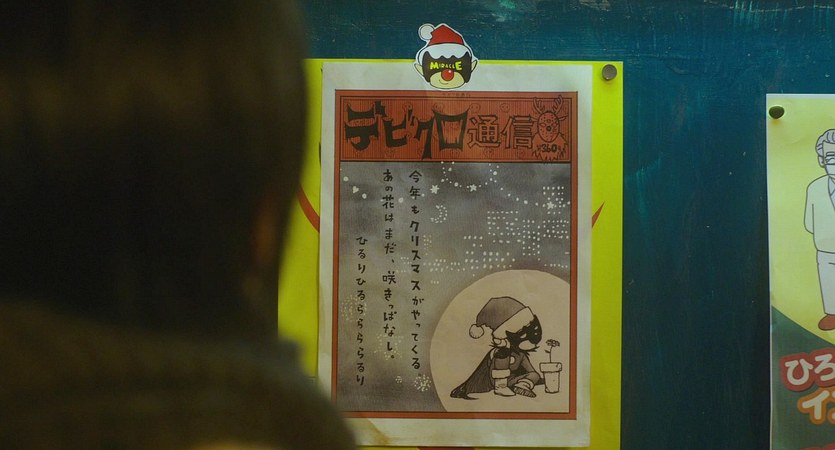 MIRACLE
デビクロ通信
360
今年もクリスマスがやってくる。
あの花はまだ、咲きっぱなし。
ひるりひるらららららるり
ひろ
イ